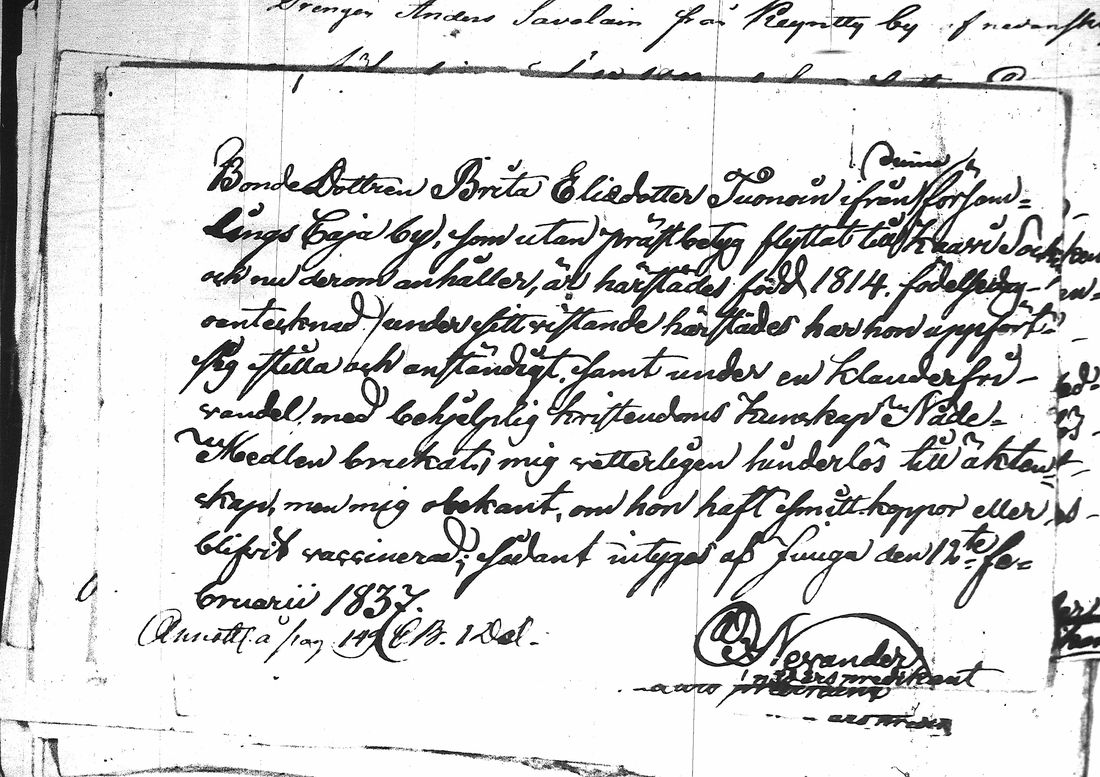 Drengen Anders Savolain från Reyntty by
denna
Bonde Dottren Brita Elisdotter Tuonoin ifrån försam=
lings Caja by, som utan prästbetyg flyttat till Kaavi Sock
och nu derom anhåller, är härstädes född 1814. födelsedag
oanteknad, under sitt vistande härstädes har hon uppfört
sig stilla och anständigt, samt under en klanderfri
vandel, med behjelplig kristendoms kunskap Nåde=
Medlen brukat, mig vetterligen hinderlös till äkten=
skap, men mig obekant, om hon haft smitt-koppor eller
blifvit vaccinerad; Sådant intygas af Juuga den 12te Fe=
bruarii 1837.
Annott. å pag 149 C B. 1 Del.
Nevander
predikant